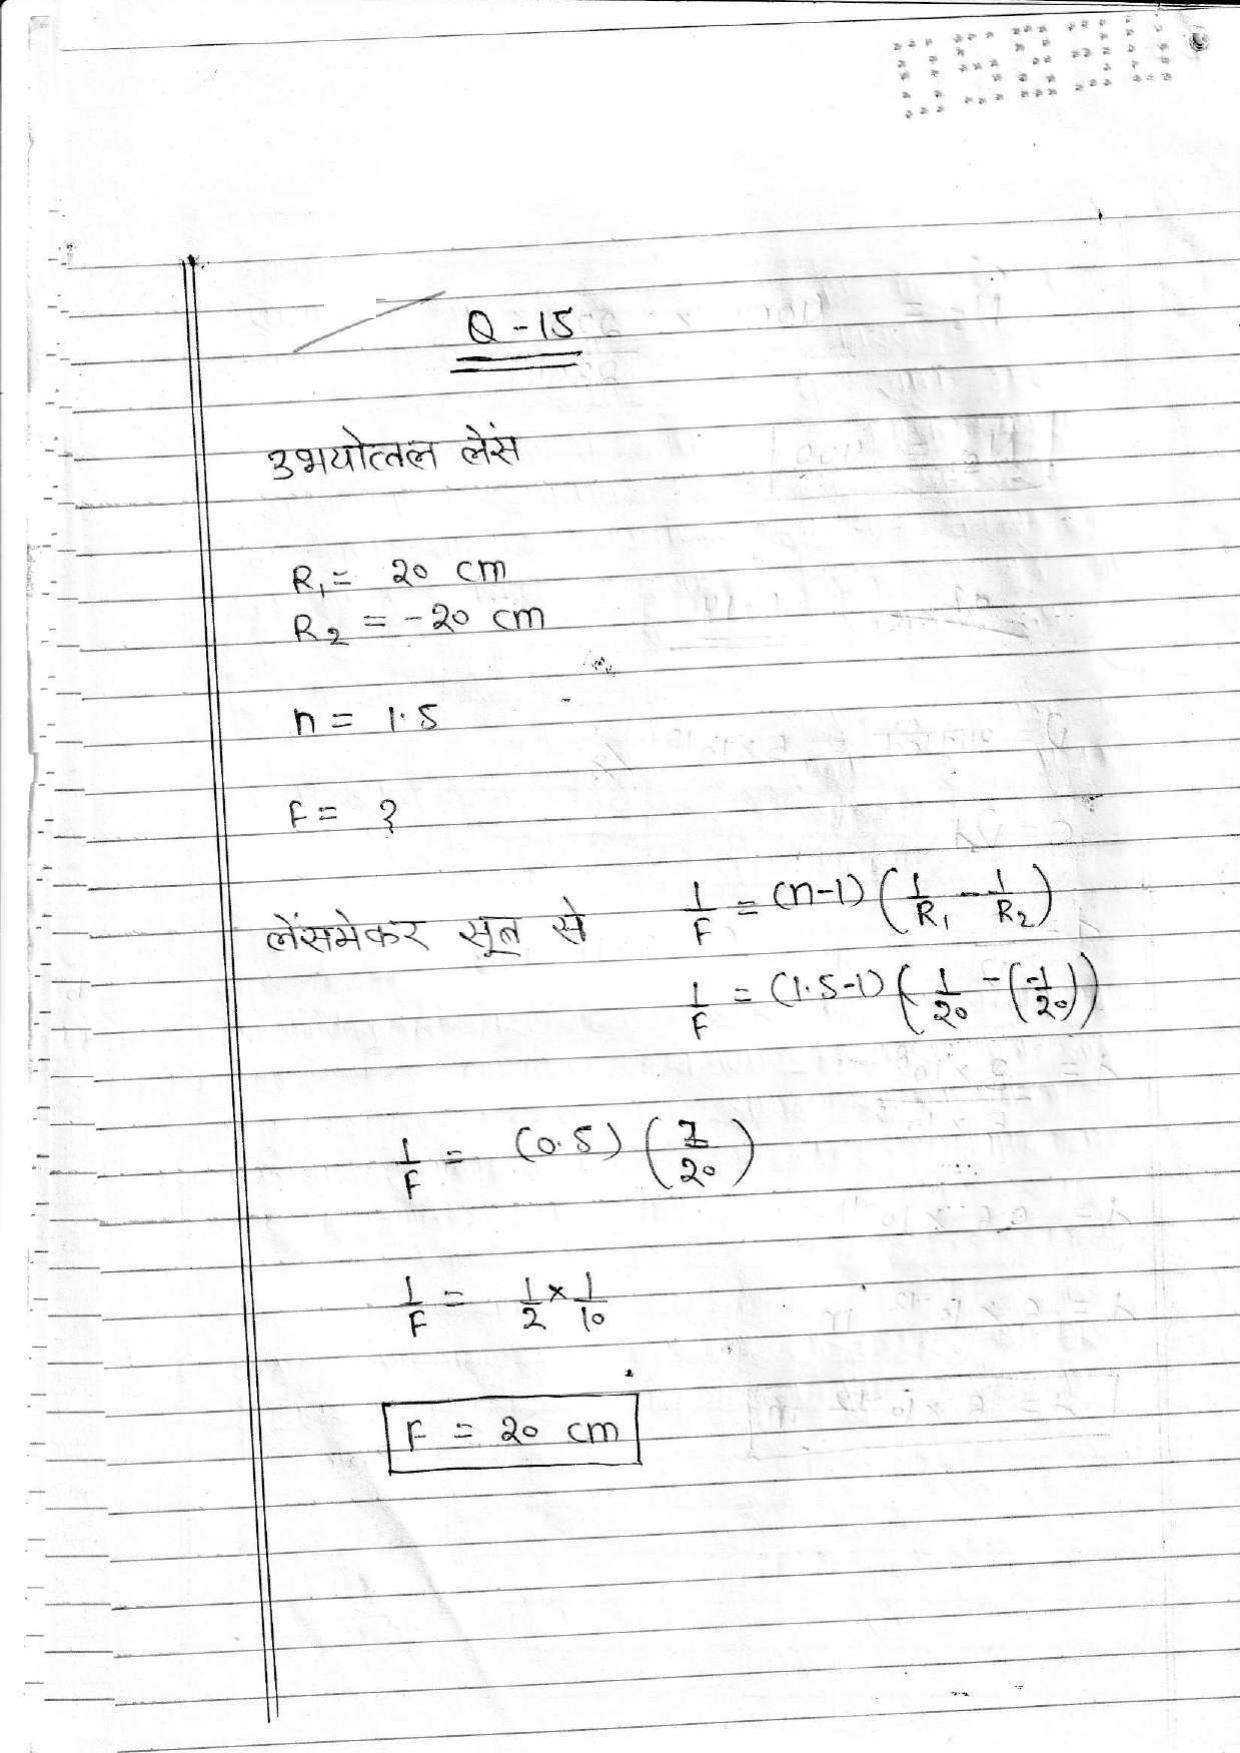 Q-15
उभयोत्तल लेंस
R₁ = 20 cm
R₂ = -20 cm
n = 1.5
F = ?
लेंसमेकर सूत्र से 1/F = (n-1) (1/R₁ - 1/R₂)
1/F = (1.5-1) (1/20 - (-1/20))
1/F = (0.5) (2/20)
1/F = 1/2 × 1/10
F = 20 cm